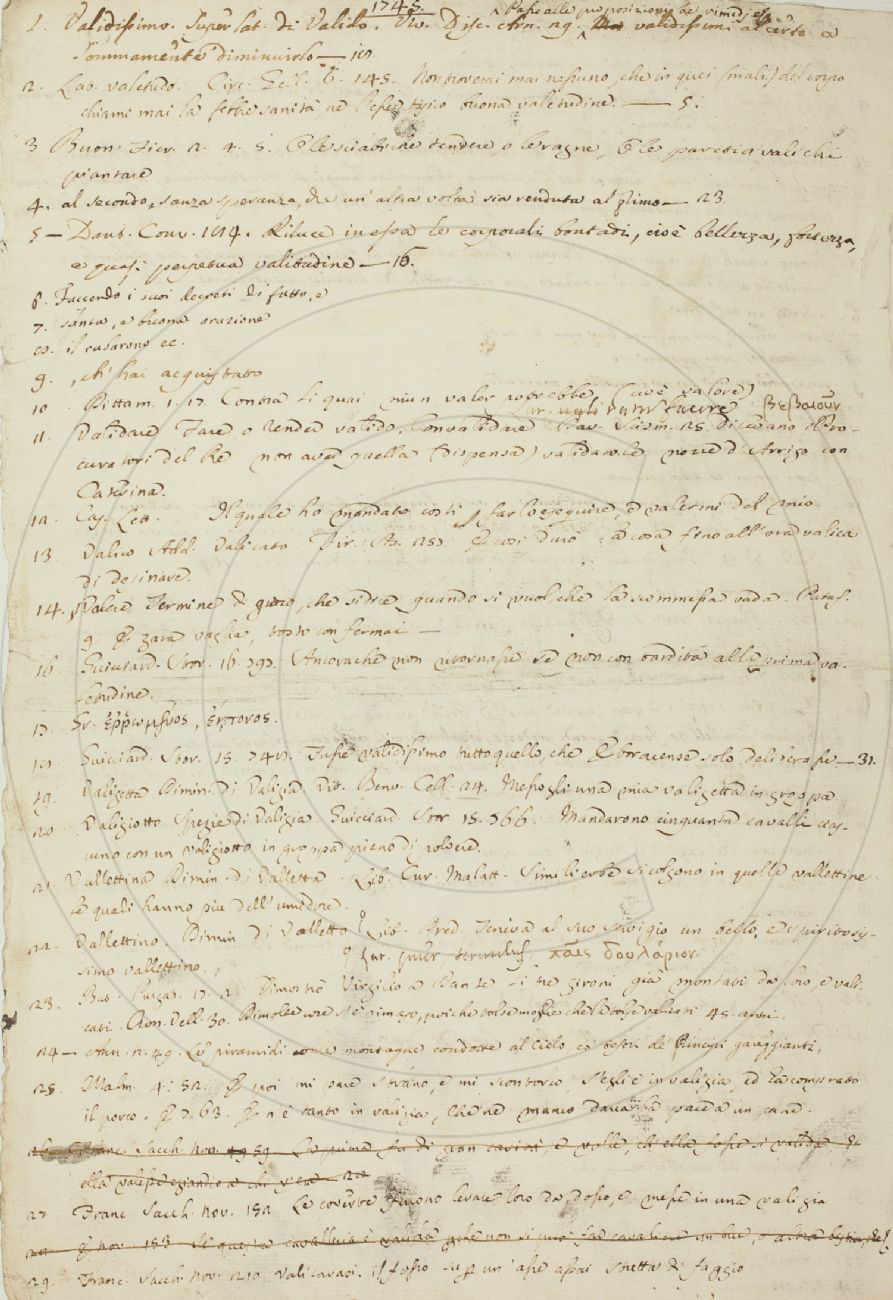 1745.
1. Validissimo. Superlat. di Valido. Viv. Disc. Arn. 29. validissimi al certo a
sommamente diminuirlo —
2. Lab. valetudo. Circ. Gell. 6. 145. Non troverai mai nessuno, che in quei (mali) del corpo
chiami mai la febbre sanità, nè l'esser tisico buona valetudine. — 5.
3 Buon. Fier. 2. 4. 5. E le sciabiche tendere, o le ragne, E le paretia vali chi
piantare
4. al secondo, sanza speranza, che un'altra volta sia renduta al primo — 23
5 — Dant. Conv. 194. Riluce in essa le corporali bontadi, cioè bellezza, fortezza,
e quasi perpetua valitudine — 16.
6. Facendo i suoi decreti di fatto, e
7. santa, e buona orazione
il rubarono ec.
9. , ch'hai acquistato
10. Dittam. 1. 17. Contra li quai niun valer potrebbe (cioè valore)
11. Validare Fare o render valido, Convalidare Dav. Scism. 25. dicevano il Pro-
curatori del Re non aver quella (dispensa) validato le nozze d'Arrigo con
Caterina.
12. Cas. Lett. Il quale ho mandato costì p farlo eseguire, e valermi del mio
13. Valico Add. Valicato Fir. As. E così durò la cosa fino all'ora valica
di desinare.
14. Valere Termine di giuoco, che si dice quando si vuol, che la scommessa vada. Pataf.
9. E zara vaglia, tosto confermai —
16. Guicciard. Stor. 16. 797. Ancorachè non ritornasse se non con tardità alla prima va-
letudine.
17. Gr. ἐρρωμένος, ἔντονος.
Guicciard. Stor. 15. 747. Fusse validissimo tutto quello, che Eboracense solo deliberasse — 31.
19. Valigetta Dimin. di Valigia. Vit. Benv. Cell. 24. Messogli una mia valigetta in groppa
20. Valigiotto Spezie di Valigia. Guicciard. Stor. 15. 766. Mandarono cinquanta cavalli cias-
cuno con un valigiotto in groppa pieno di polvere.
21. Vallettina Dimin. di Valletta. Lib. Cur. Malatt. Simili erbe si colgono in quelle vallettine
le quali hanno più dell'umidore.
22. Vallettino. Dimin. di Valletto Lib. Pred. Teneva al suo servigio un bello, e spiritosis-
simo vallettino. Lat. παῖς δουλάριον
23. But. Purg. 17. 2. Dimostrò Virgilio a Dante li tre gironi già montati da loro, e vali-
cati. Ron. Vell. 30. poichè tolse moglie che la tolse valicati 45 anni.
24 — Ann. n. 49. Le piramidi come montagne condotte al Cielo co' tesori de' Principi gareggianti,
25. Malm. 4. 52. E voi mi pare strano, e mi scontorco, S'egli è in valigia, ed ha comprato
il porco. E 7. 63. E n'è tanto in valigia, Che nè manco daria la pace a un cane.
Franc. Sacch. Nov. 59. La prima fu di gran carità, e volle, ch'ella fosse sì valida
27. Franc Sacch. Nov. 152. Le coverte furono levate loro da dosso, e messe in una valigia
E nov. 153 Se questa cavalleria è valida, che non si può far cavaliere un bue, o altra bestia,
29. Franc. Sacch. Nov. 210. valicarono il fosso su p un'asse assai stretta di faggio